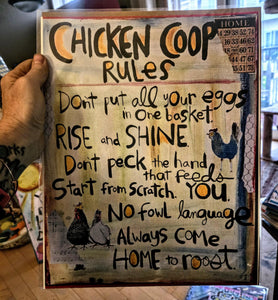 CHICKEN COOP
RULES
HOME
Don't put all your eggs
in one basket.
RISE and SHINE
Don't peck the hand
that feeds
Start from scratch. YOU.
NO fowl language
Always Come
HOME to roost